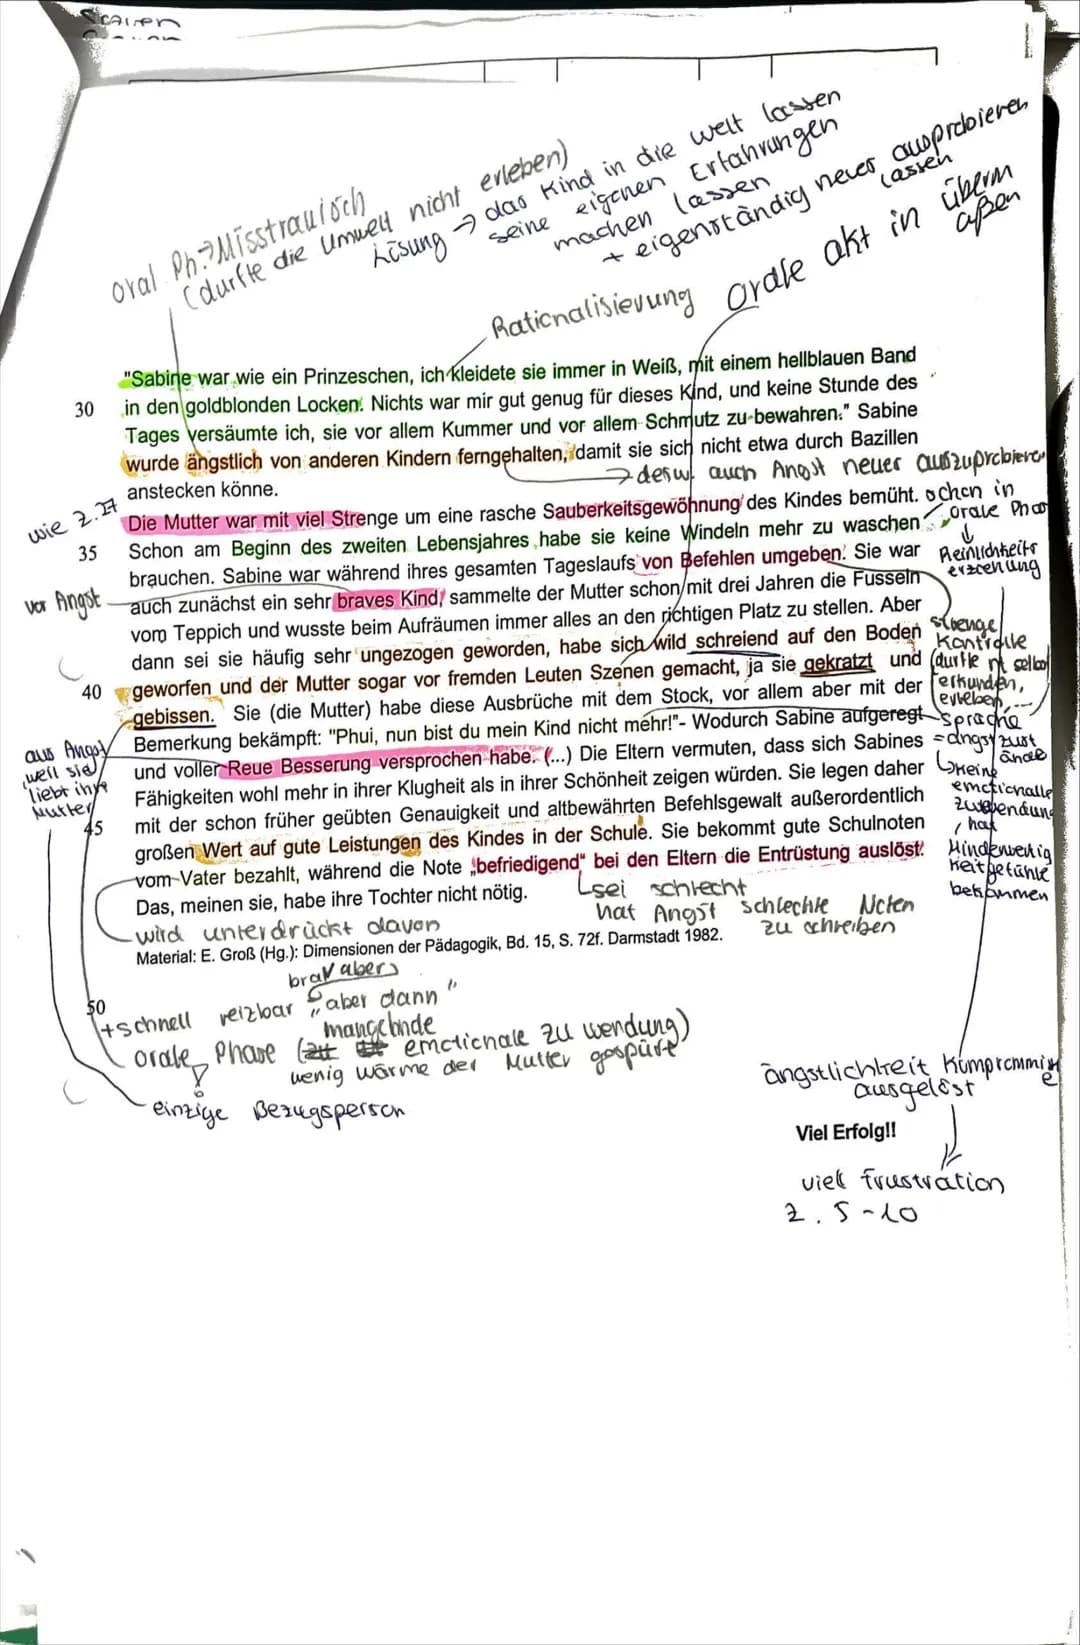 oral Ph.→Misstrauisch
(durfte die Umwelt nicht erleben)
Lösung → das Kind in die welt lassen
seine eigenen Erfahrungen
machen lassen
+ eigenständig neues ausprobieren
lassen
Rationalisierung
orale akt in überm
aßen
"Sabine war wie ein Prinzeschen, ich kleidete sie immer in Weiß, mit einem hellblauen Band
30 in den goldblonden Locken. Nichts war mir gut genug für dieses Kind, und keine Stunde des
Tages versäumte ich, sie vor allem Kummer und vor allem Schmutz zu bewahren." Sabine
wurde ängstlich von anderen Kindern ferngehalten, damit sie sich nicht etwa durch Bazillen
→ desw. auch Angst neuer auszuprobieren
anstecken könne.
wie Z. 27
Die Mutter war mit viel Strenge um eine rasche Sauberkeitsgewöhnung des Kindes bemüht.
schon in
orale Phas
↓
Reinlichkeits
erziehung
35 Schon am Beginn des zweiten Lebensjahres habe sie keine Windeln mehr zu waschen
brauchen. Sabine war während ihres gesamten Tageslaufs von Befehlen umgeben. Sie war
vor Angst
auch zunächst ein sehr braves Kind, sammelte der Mutter schon mit drei Jahren die Fusseln
vom Teppich und wusste beim Aufräumen immer alles an den richtigen Platz zu stellen. Aber
dann sei sie häufig sehr ungezogen geworden, habe sich wild schreiend auf den Boden
40 geworfen und der Mutter sogar vor fremden Leuten Szenen gemacht, ja sie gekratzt und
gebissen. Sie (die Mutter) habe diese Ausbrüche mit dem Stock, vor allem aber mit der
Bemerkung bekämpft: "Phui, nun bist du mein Kind nicht mehr!"- Wodurch Sabine aufgeregt
und voller Reue Besserung versprochen habe. (...) Die Eltern vermuten, dass sich Sabines
Fähigkeiten wohl mehr in ihrer Klugheit als in ihrer Schönheit zeigen würden. Sie legen daher
45 mit der schon früher geübten Genauigkeit und altbewährten Befehlsgewalt außerordentlich
großen Wert auf gute Leistungen des Kindes in der Schule. Sie bekommt gute Schulnoten
vom Vater bezahlt, während die Note „befriedigend" bei den Eltern die Entrüstung auslöst.
Das, meinen sie, habe ihre Tochter nicht nötig.
strenge
Kontrolle
(durfte nt selbst
erkunden,
erleben,...)
Sprache
= angst zust
ände
↳ keine
emotionalle
zuwendung
, hat
Minderwertig
keitgefühle
bekommen
aus Angst
weil sie
liebt ihre
Mutter
sei schlecht
hat Angst schlechte Noten
zu schreiben
wird unterdrückt davon
Material: E. Groß (Hg.): Dimensionen der Pädagogik, Bd. 15, S. 72f. Darmstadt 1982.
brav aber
50
+schnell reizbar "aber dann"
mangelnde
orale Phase ( emotionale zu wendung)
wenig wärme der Mutter gespürt
einzige Bezugsperson
ängstlichkeit Komprommiss
e
ausgelöst
Viel Erfolg!!
viel Frustration
Z. 5-10